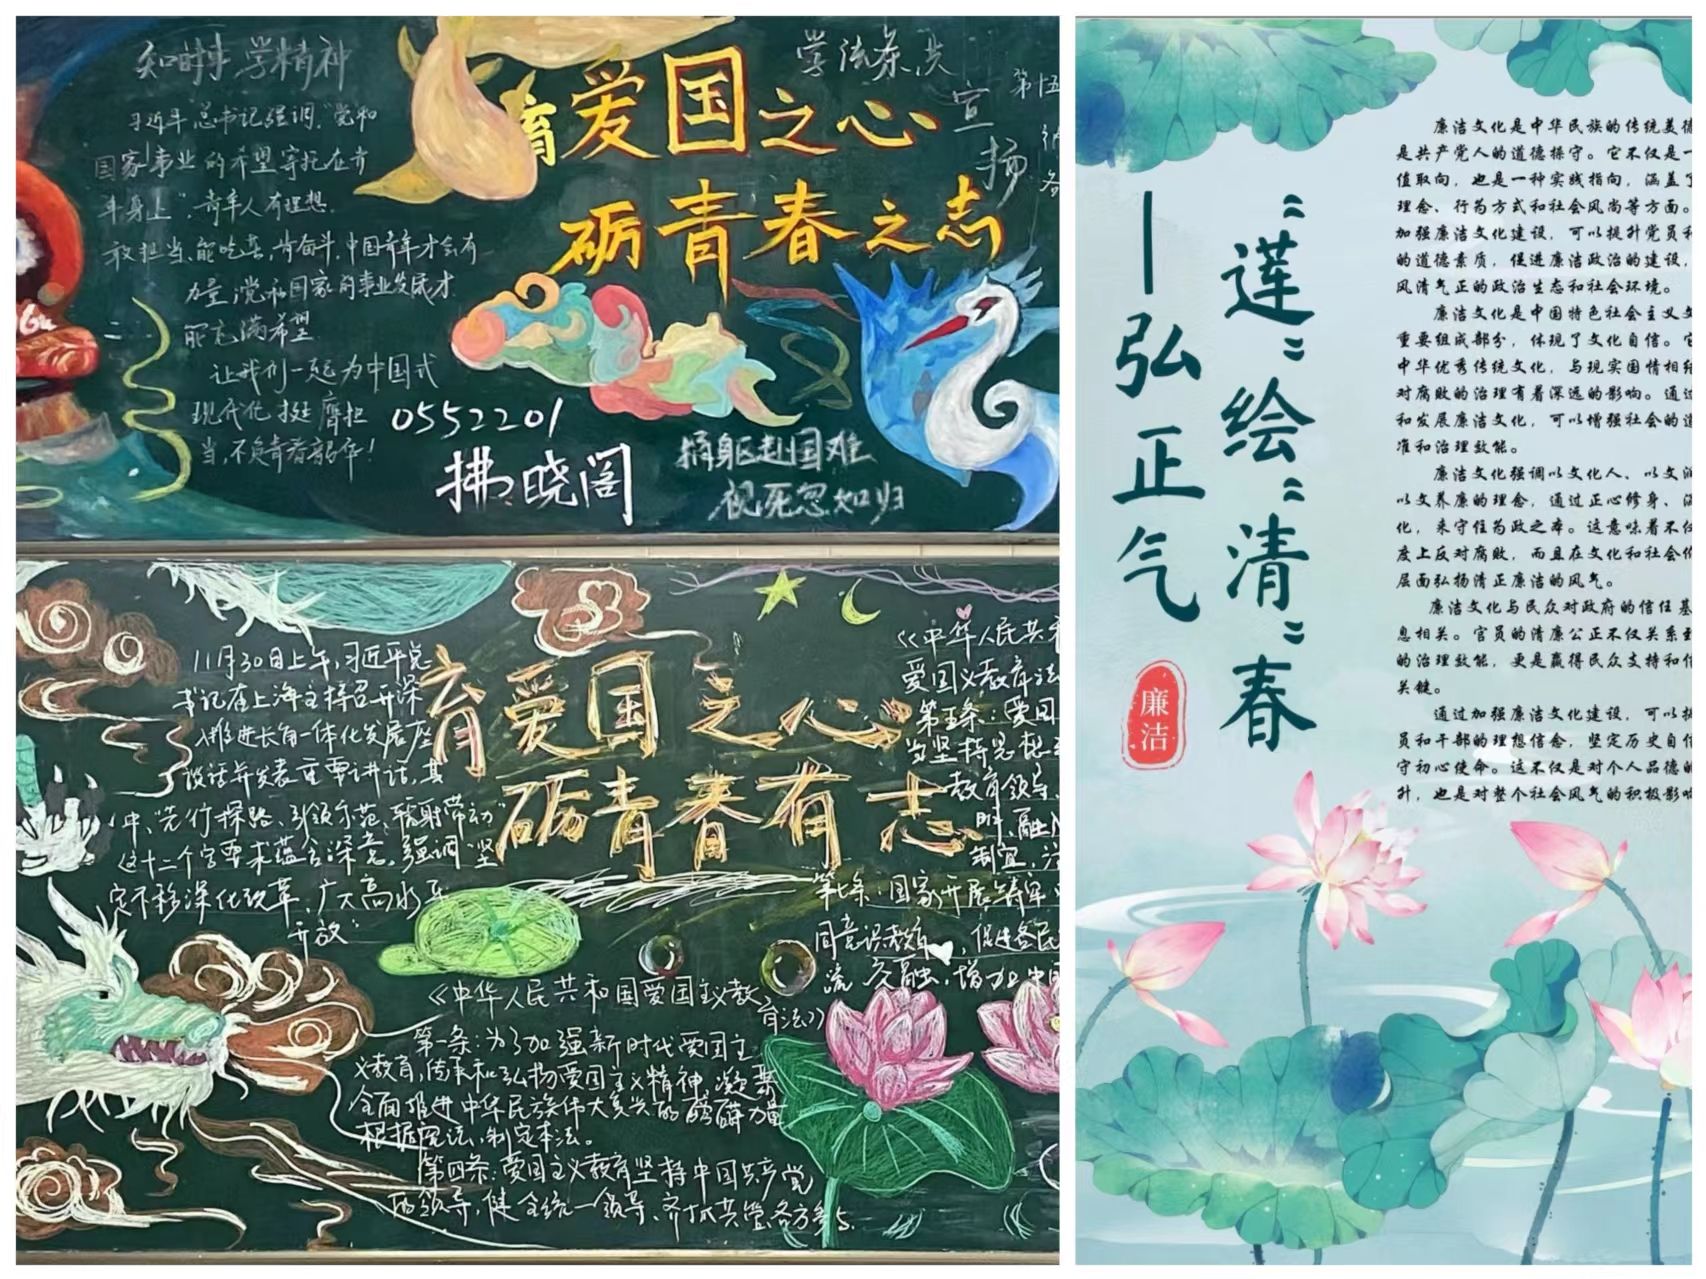 知时事 学精神
习近平总书记强调，"党和
国家事业的希望寄托在青
年身上"，青年人有理想，
敢担当、能吃苦，肯奋斗，中国青年才会有
力量，党和国家的事业发展才
能充满希望
让我们一起为中国式
现代化挺膺担
当，不负青春韶华！
育爱国之心
砺青春之志
学法条共
宣扬
第五
0552201
拂晓阁
捐躯赴国难
视死忽如归
11月30日上午，习近平总
书记在上海主持召开深
入推进长三角一体化发展座
谈话并发表重要讲话，其
中，"先行探路、引领示范、辐射带动"
这十二个字要求蕴含深意。强调"坚
定不移深化改革、广大高水平
开放"
育爱国之心
砺青春有志
《中华人民共和
爱国义教育法
第五条：爱国
当坚持思想
教育领导、
时、融
制宜，注
第七条：国家开展铸牢中
同意识教育，促进各民
流交融，增加上中国
《中华人民共和国爱国主义教
育法》
第一条：为了加强新时代爱国主
义教育，传承和弘扬爱国主义精神，凝聚
全面推进中华民族伟大复兴的磅礴力量
根据宪法，制定本法。
第四条：爱国主义教育坚持中国共产党
的领导，健全统一领导、齐抓共管、各方参与、
"莲"绘"清"春
——弘正气
廉洁
廉洁文化是中华民族的传统美德
是共产党人的道德操守。它不仅是一
值取向，也是一种实践指向，涵盖了
理念、行为方式和社会风尚等方面。
加强廉洁文化建设，可以提升党员和
的道德素质，促进廉洁政治的建设，
风清气正的政治生态和社会环境。
廉洁文化是中国特色社会主义文
重要组成部分，体现了文化自信。它
中华优秀传统文化，与现实国情相结
对腐败的治理有着深远的影响。通过
和发展廉洁文化，可以增强社会的道
准和治理效能。
廉洁文化强调以文化人、以文润
以文养廉的理念，通过正心修身、涵
化，来守住为政之本。这意味着不仅
度上反对腐败，而且在文化和社会价
层面弘扬清正廉洁的风气。
廉洁文化与民众对政府的信任基
息相关。官员的清廉公正不仅关系到
的治理效能，更是赢得民众支持和信
关键。
通过加强廉洁文化建设，可以提
员和干部的理想信念，坚定历史自信
守初心使命。这不仅是对个人品德的
升，也是对整个社会风气的积极影响